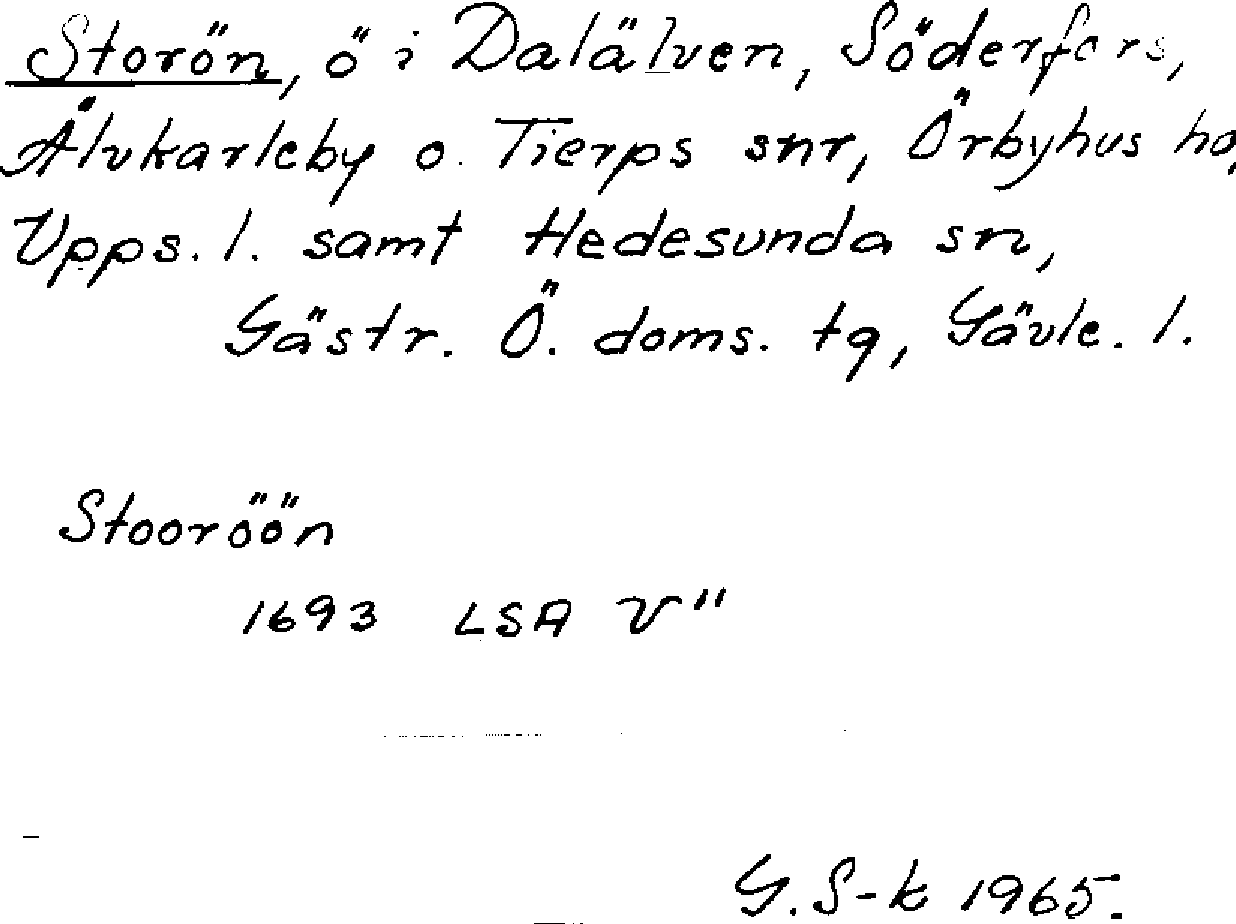 Storön, ö i Dalälven, Söderfors,
Älvkarleby o. Tierps snr, Örbyhus hd,
Upps. l. samt Hedesunda sn,
Gästr. Ö. doms. tg, Gävle. l.
Stooröön
1693 LSA V"
G. S-k 1965.